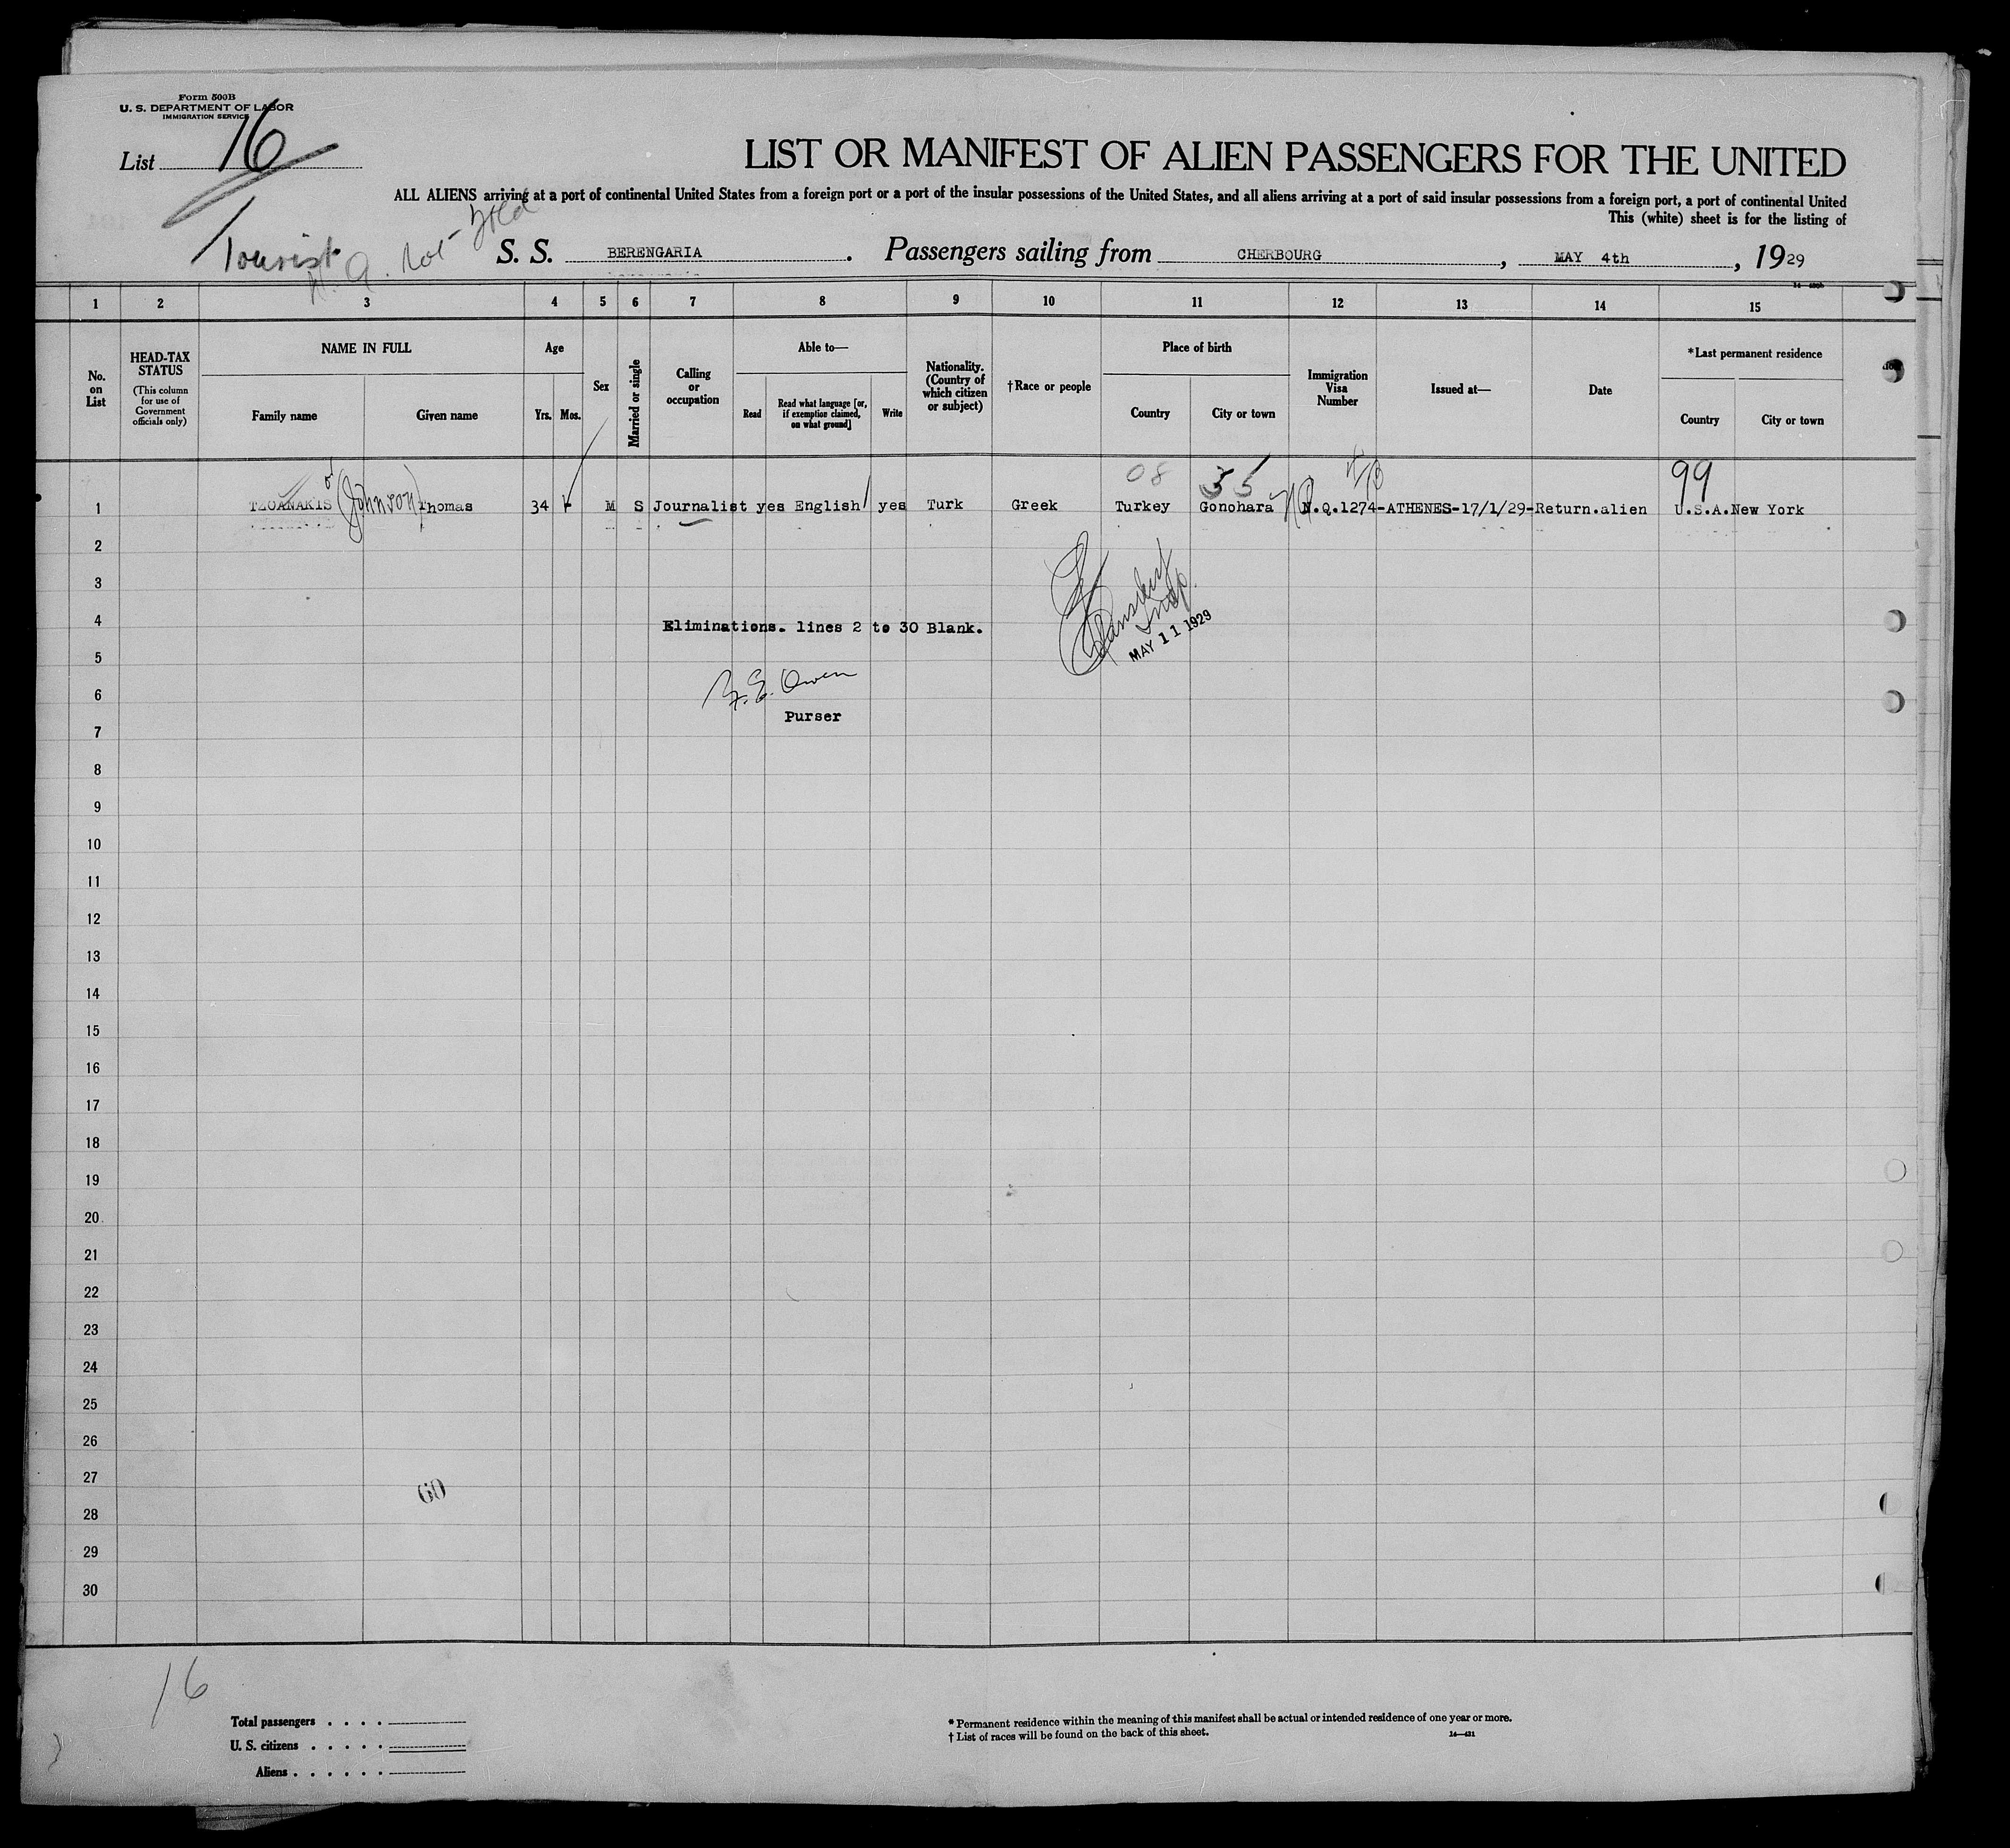 Form 500B
U. S. DEPARTMENT OF LABOR
IMMIGRATION SERVICE
List 16
LIST OR MANIFEST OF ALIEN PASSENGERS FOR THE UNITED
ALL ALIENS arriving at a port of continental United States from a foreign port or a port of the insular possessions of the United States, and all aliens arriving at a port of said insular possessions from a foreign port, a port of continental United
This (white) sheet is for the listing of
Tourist
S. S. BERENGARIA . Passengers sailing from CHERBOURG , MAY 4th , 1929
1 2 3 4 5 6 7 8 9 10 11 12 13 14 15
No. on List
HEAD-TAX STATUS
(This column for use of Government officials only)
NAME IN FULL
Family name Given name
Age
Yrs. Mos.
Sex
Married or single
Calling or occupation
Able to—
Read
Read what language [or, if exemption claimed, on what ground]
Write
Nationality. (Country of which citizen or subject)
†Race or people
Place of birth
Country City or town
Immigration Visa Number
Issued at—
Date
*Last permanent residence
Country City or town
08 35 99
1 TZOANAKIS or (Johnson) Thomas 34 M S Journalist yes English yes Turk Greek Turkey Gonohara N.Q.1274-ATHENES-17/1/29-Return.alien U.S.A. New York
2
3
4
Eliminations. lines 2 to 30 Blank.
Insp.
MAY 11 1929
5
6
Owen
Purser
7
8
9
10
11
12
13
14
15
16
17
18
19
20
21
22
23
24
25
26
27
60
28
29
30
16
Total passengers . . . .
U. S. citizens . . . . .
Aliens . . . . . .
* Permanent residence within the meaning of this manifest shall be actual or intended residence of one year or more.
† List of races will be found on the back of this sheet.
14—431